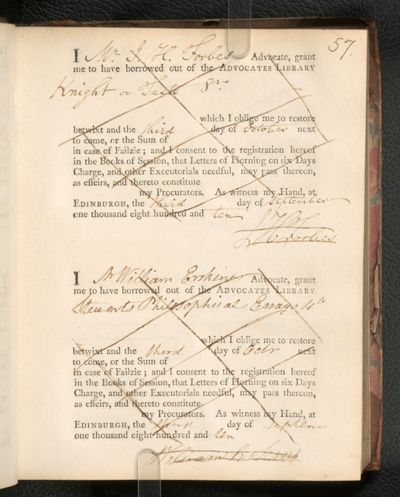 57.
I Mr. J. H. Forbes Advocate, grant
me to have borrowed out of the ADVOCATES LIBRARY
Knight on 8vo
which I oblige me to restore
betwixt and the third day of October next
to come, or the Sum of
in case of Failzie; and I consent to the registration hereof
in the Books of Session, that Letters of Horning on six Days
Charge, and other Executorials needful, may pass thereon,
as effeirs, and thereto constitute
my Procurators. As witness my Hand, at
EDINBURGH, the third day of September
one thousand eight hundred and ten
J H Forbes
I Mr William Erskine Advocate, grant
me to have borrowed out of the ADVOCATES LIBRARY
Stewarts Philosophical Essays 4to
which I oblige me to restore
betwixt and the third day of Octr next
to come, or the Sum of
in case of Failzie; and I consent to the registration hereof
in the Books of Session, that Letters of Horning on six Days
Charge, and other Executorials needful, may pass thereon,
as effeirs, and thereto constitute
my Procurators. As witness my Hand, at
EDINBURGH, the third day of Septem
one thousand eight hundred and ten
William Erskine